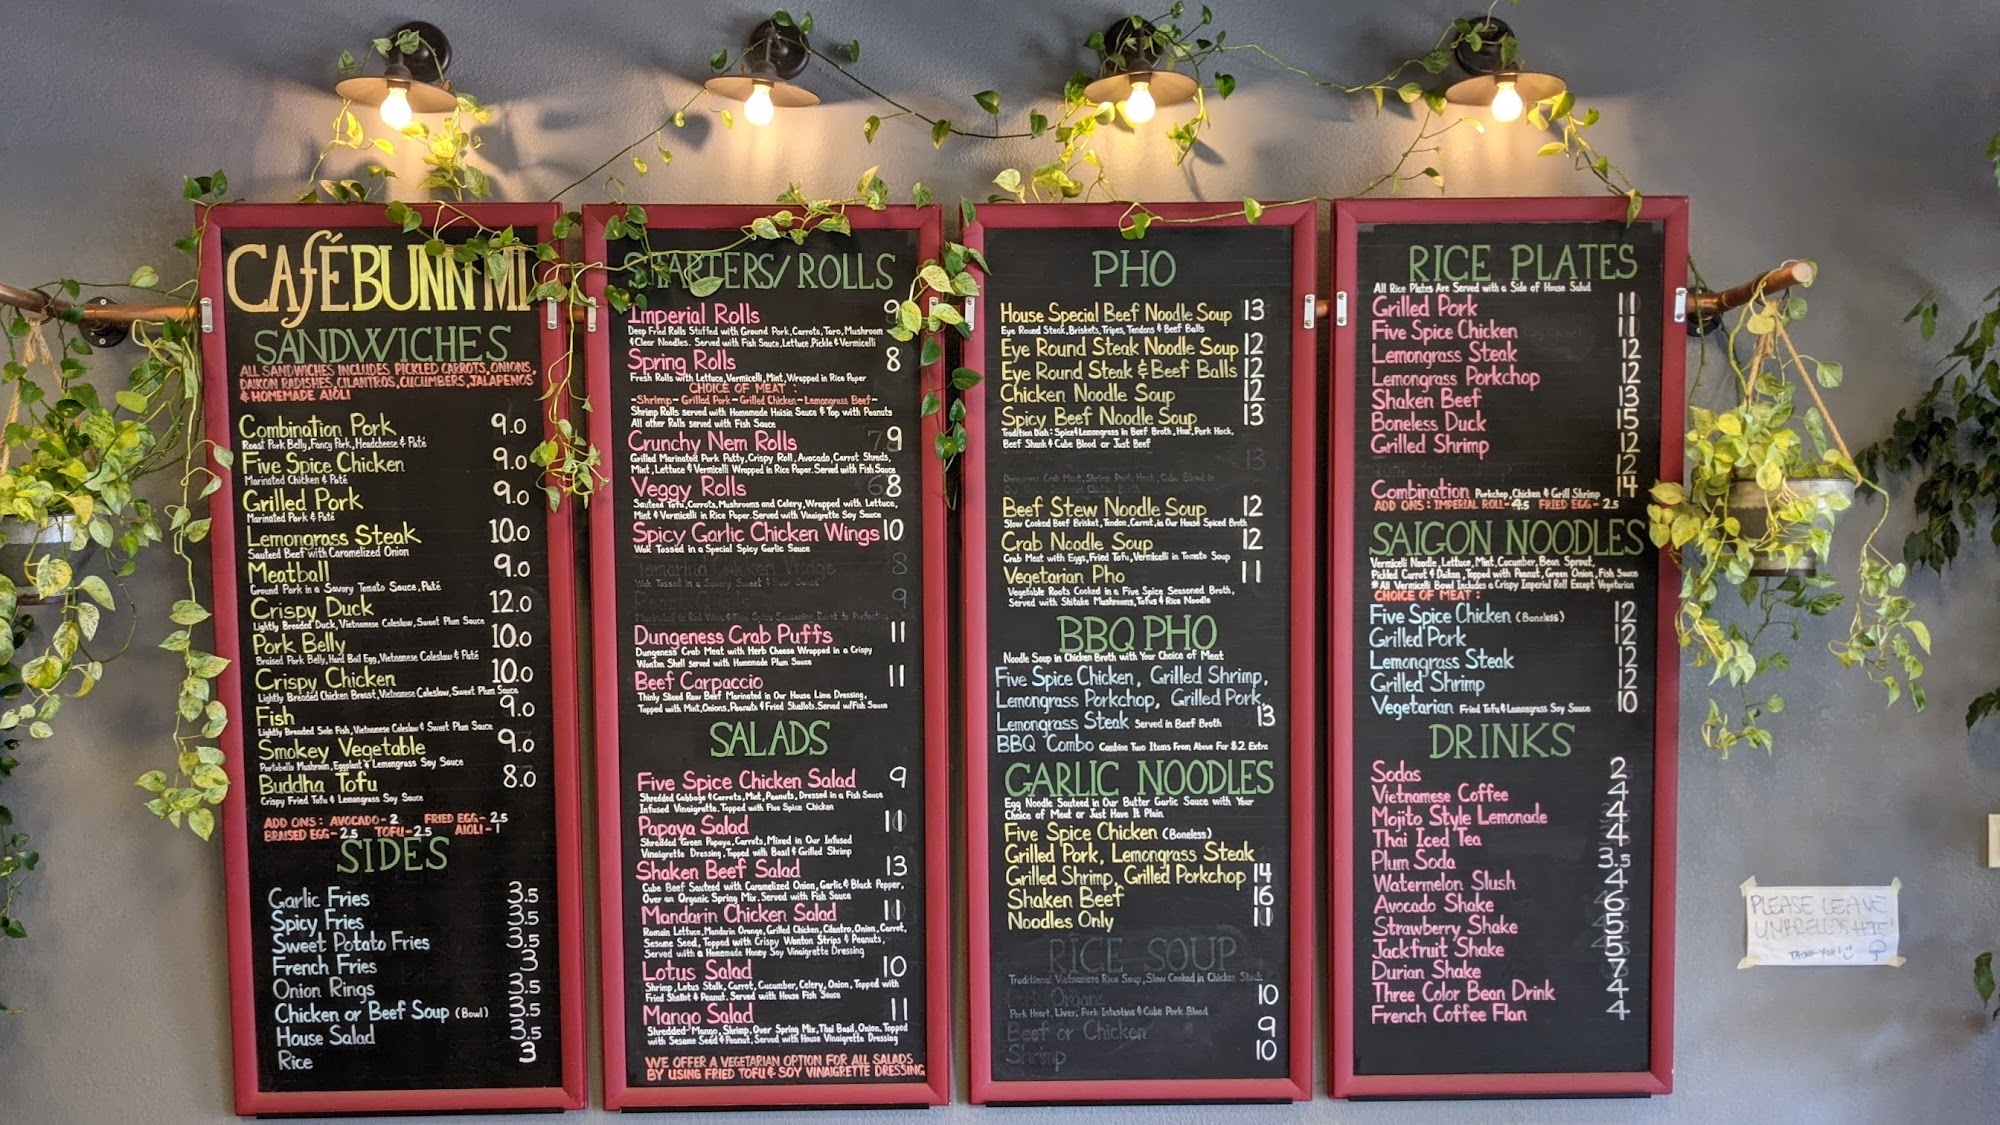 CAFÉ BUNN MI
SANDWICHES
ALL SANDWICHES INCLUDES PICKLED CARROTS, ONIONS,
DAIKON RADISHES, CILANTROS, CUCUMBERS, JALAPENOS
& HOMEMADE AIOLI
Combination Pork 9.0
Roast Pork Belly, Fancy Pork, Headcheese & Paté
Five Spice Chicken 9.0
Marinated Chicken & Paté
Grilled Pork 9.0
Marinated Pork & Paté
Lemongrass Steak 10.0
Sauteed Beef with Caramelized Onion
Meatball 9.0
Ground Pork in a Savory Tomato Sauce, Paté
Crispy Duck 12.0
Lightly Breaded Duck, Vietnamese Coleslaw, Sweet Plum Sauce
Pork Belly 10.0
Braised Pork Belly, Hard Boil Egg, Vietnamese Coleslaw & Paté
Crispy Chicken 10.0
Lightly Breaded Chicken Breast, Vietnamese Coleslaw, Sweet Plum Sauce
Fish 9.0
Lightly Breaded Sole Fish, Vietnamese Coleslaw & Sweet Plum Sauce
Smokey Vegetable 9.0
Portobello Mushroom, Eggplant & Lemongrass Soy Sauce
Buddha Tofu 8.0
Crispy Fried Tofu & Lemongrass Soy Sauce
ADD ONS: AVOCADO-2 FRIED EGG-2.5
BRAISED EGG-2.5 TOFU-2.5 AIOLI-1
SIDES
Garlic Fries 3.5
Spicy Fries 3.5
Sweet Potato Fries 3.5
French Fries 3
Onion Rings 3.5
Chicken or Beef Soup (Bowl) 3.5
House Salad 3.5
Rice 3
STARTERS/ROLLS
Imperial Rolls 9
Deep Fried Rolls Stuffed with Ground Pork, Carrots, Taro, Mushroom
& Clear Noodles. Served with Fish Sauce, Lettuce, Pickle & Vermicelli
Spring Rolls 8
Fresh Rolls with Lettuce, Vermicelli, Mint, Wrapped in Rice Paper
CHOICE OF MEAT :
-Shrimp- Grilled Pork - Grilled Chicken - Lemongrass Beef-
Shrimp Rolls served with Homemade Hoisin Sauce & Top with Peanuts
All other Rolls served with Fish Sauce
Crunchy Nem Rolls 9
Grilled Marinated Pork Patty, Crispy Roll, Avocado, Carrot Shreds,
Mint, Lettuce & Vermicelli Wrapped in Rice Paper. Served with Fish Sauce
Veggy Rolls 8
Sauteed Tofu, Carrots, Mushrooms and Celery, Wrapped with Lettuce,
Mint & Vermicelli in Rice Paper. Served with Vinaigrette Soy Sauce
Spicy Garlic Chicken Wings 10
Wok Tossed in a Special Spicy Garlic Sauce
Tamarind Chicken Wings 8
Wok Tossed in a Savory Sweet & Sour Sauce
9
Dungeness Crab Puffs 11
Dungeness Crab Meat with Herb Cheese Wrapped in a Crispy
Wonton Shell served with Homemade Plum Sauce
Beef Carpaccio 11
Thinly Sliced Raw Beef Marinated in Our House Lime Dressing,
Topped with Mint, Onions, Peanuts & Fried Shallots. Served w/Fish Sauce
SALADS
Five Spice Chicken Salad 9
Shredded Cabbage & Carrots, Mint, Peanuts, Dressed in a Fish Sauce
Infused Vinaigrette. Topped with Five Spice Chicken
Papaya Salad 11
Shredded Green Papaya, Carrots, Mixed in Our Infused
Vinaigrette Dressing, Topped with Basil & Grilled Shrimp
Shaken Beef Salad 13
Cube Beef Sauteed with Caramelized Onion, Garlic & Black Pepper,
Over an Organic Spring Mix. Served with Fish Sauce
Mandarin Chicken Salad 11
Romain Lettuce, Mandarin Orange, Grilled Chicken, Cilantro, Onion, Carrot,
Sesame Seed, Topped with Crispy Wonton Strips & Peanuts,
Served with a Homemade Honey Soy Vinaigrette Dressing
Lotus Salad 10
Shrimp, Lotus Stalk, Carrot, Cucumber, Celery, Onion, Topped with
Fried Shallot & Peanut. Served with House Fish Sauce
Mango Salad 11
Shredded Mango, Shrimp, Over Spring Mix, Thai Basil, Onion, Topped
with Sesame Seed & Peanut, Served with House Vinaigrette Dressing
WE OFFER A VEGETARIAN OPTION FOR ALL SALADS
BY USING FRIED TOFU & SOY VINAIGRETTE DRESSING
PHO
House Special Beef Noodle Soup 13
Eye Round Steak, Briskets, Tripes, Tendons & Beef Balls
Eye Round Steak Noodle Soup 12
Eye Round Steak & Beef Balls 12
Chicken Noodle Soup 12
Spicy Beef Noodle Soup 13
Tradition Dish: Spice & Lemongrass in Beef Broth, Ham, Pork Hock,
Beef Shank & Cube Blood or Just Beef
13
Beef Stew Noodle Soup 12
Slow Cooked Beef Brisket, Tendon, Carrot, in Our House Spiced Broth
Crab Noodle Soup 12
Crab Meat with Eggs, Fried Tofu, Vermicelli in Tomato Soup
Vegetarian Pho 11
Vegetable Roots Cooked in a Five Spice Seasoned Broth,
Served with Shitake Mushrooms, Tofus & Rice Noodle
BBQ PHO
Noodle Soup in Chicken Broth with Your Choice of Meat
Five Spice Chicken, Grilled Shrimp,
Lemongrass Porkchop, Grilled Pork,
Lemongrass Steak Served in Beef Broth 13
BBQ Combo Combine Two Items From Above For $2 Extra
GARLIC NOODLES
Egg Noodle Sauteed in Our Butter Garlic Sauce with Your
Choice of Meat or Just Have It Plain
Five Spice Chicken (Boneless)
Grilled Pork, Lemongrass Steak
Grilled Shrimp, Grilled Porkchop 14
Shaken Beef 16
Noodles Only 11
RICE SOUP
Traditional Vietnamese Rice Soup, Slow Cooked in Chicken Stock
Pork Organs 10
Pork Heart, Liver, Pork Intestine & Cube Pork Blood
Beef or Chicken 9
Shrimp 10
RICE PLATES
All Rice Plates Are Served with a Side of House Salad
Grilled Pork 11
Five Spice Chicken 11
Lemongrass Steak 12
Lemongrass Porkchop 12
Shaken Beef 13
Boneless Duck 15
Grilled Shrimp 12
12
Combination Porkchop, Chicken & Grill Shrimp 14
ADD ONS: IMPERIAL ROLL-4.5 FRIED EGG-2.5
SAIGON NOODLES
Vermicelli Noodle, Lettuce, Mint, Cucumber, Bean Sprout,
Pickled Carrot & Daikon, Topped with Peanut, Green Onion, Fish Sauce
*All Vermicelli Bowl Includes a Crispy Imperial Roll Except Vegetarian
CHOICE OF MEAT :
Five Spice Chicken (Boneless) 12
Grilled Pork 12
Lemongrass Steak 12
Grilled Shrimp 12
Vegetarian Fried Tofu & Lemongrass Soy Sauce 10
DRINKS
Sodas 2
Vietnamese Coffee 4
Mojito Style Lemonade 4
Thai Iced Tea 4
Plum Soda 3.5
Watermelon Slush 4
Avocado Shake 6
Strawberry Shake 5
Jackfruit Shake 5
Durian Shake 7
Three Color Bean Drink 4
French Coffee Flan 4
PLEASE LEAVE
UMBRELLAS HERE!
THANK YOU!